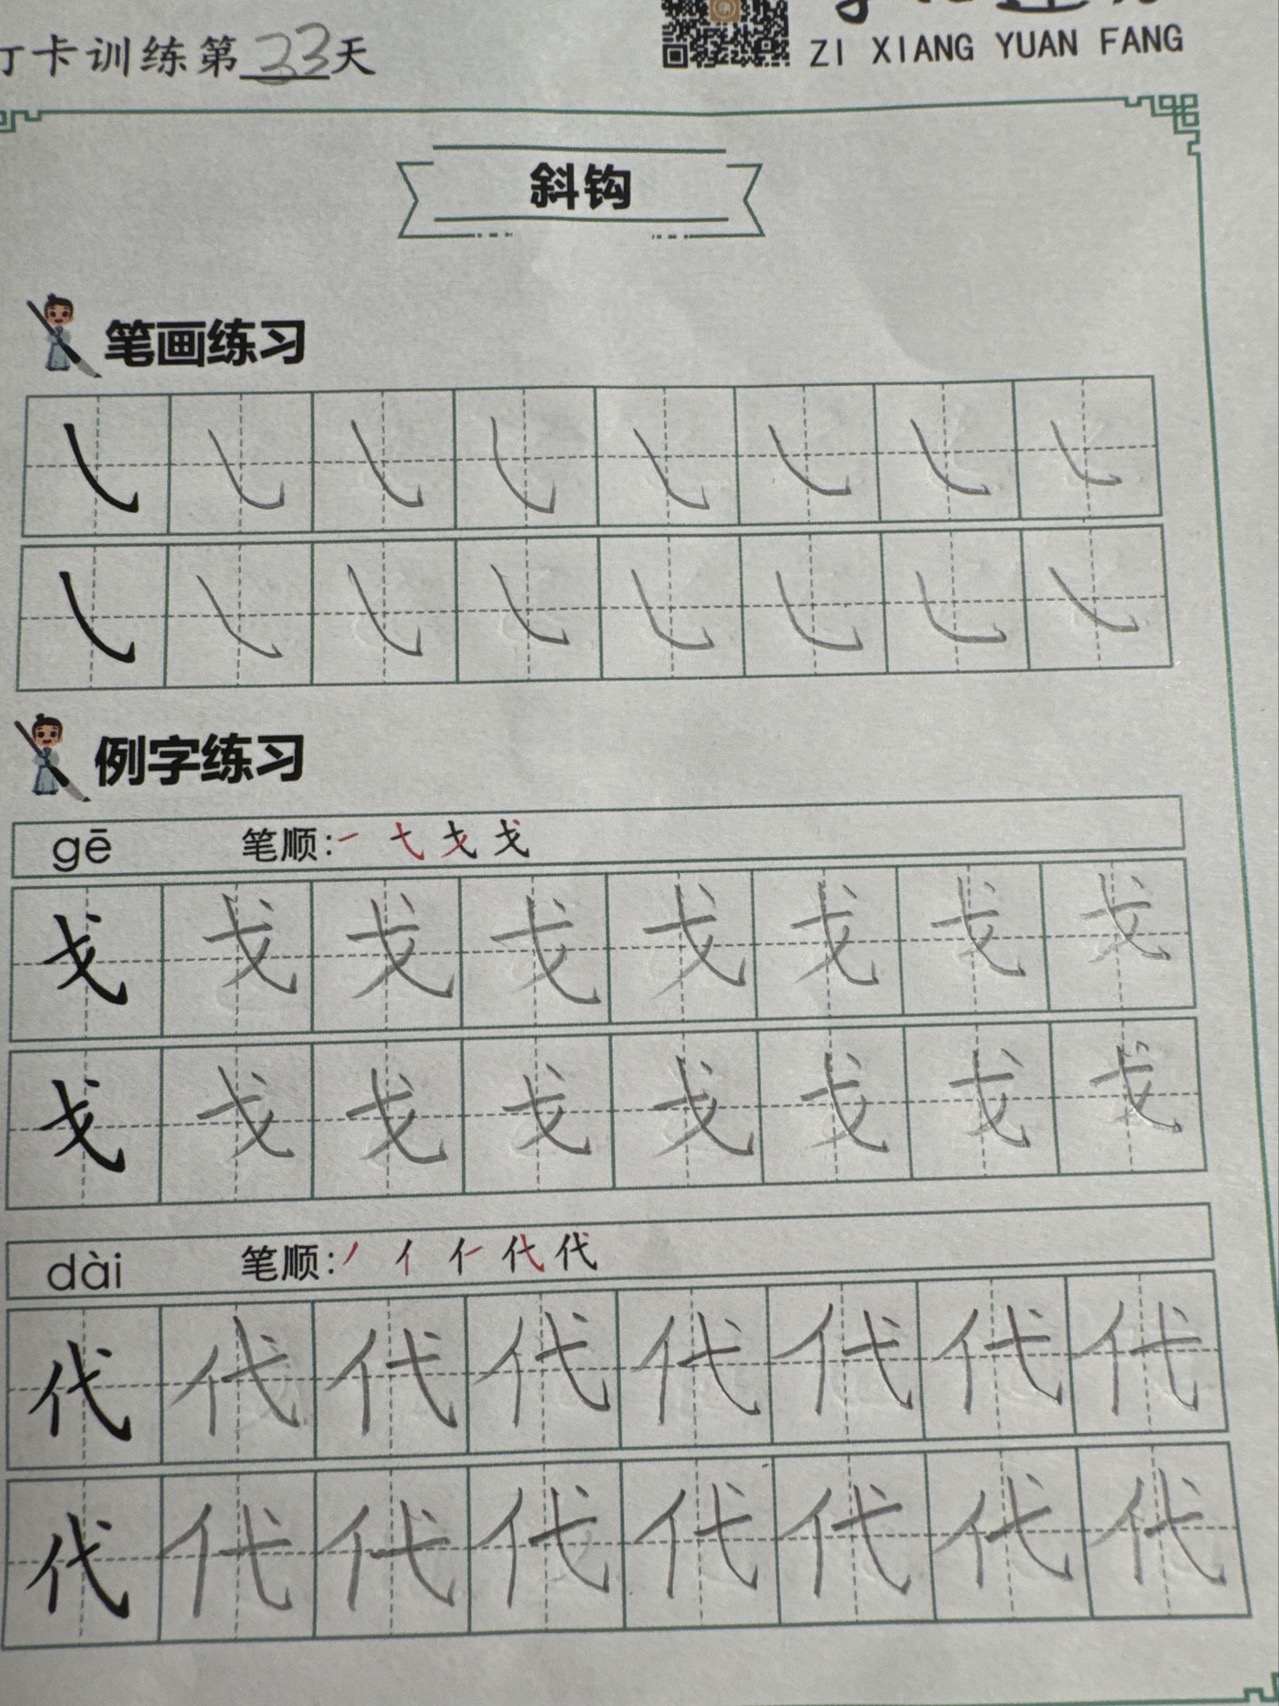 打卡训练第23天
ZI XIANG YUAN FANG
斜钩
笔画练习
㇂ ㇂ ㇂ ㇂ ㇂ ㇂ ㇂ ㇂
㇂ ㇂ ㇂ ㇂ ㇂ ㇂ ㇂ ㇂
例字练习
gē 笔顺:
戈 戈 戈 戈 戈 戈 戈 戈
戈 戈 戈 戈 戈 戈 戈 戈
dài 笔顺:
代 代 代 代 代 代 代 代
代 代 代 代 代 代 代 代